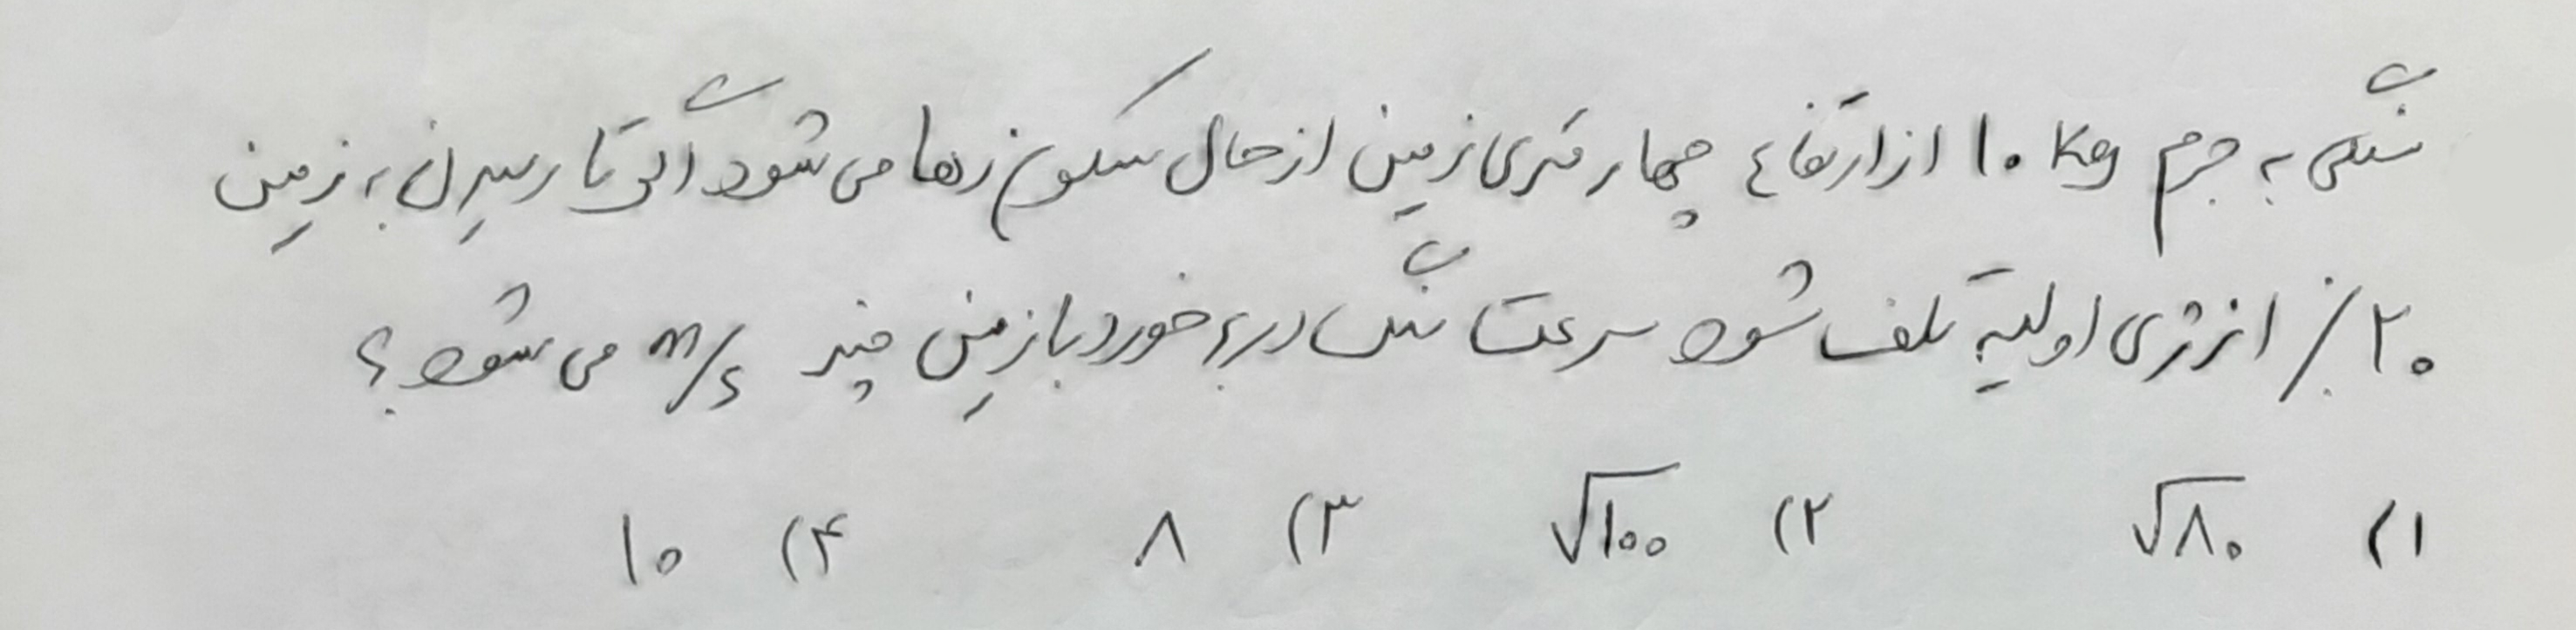 سنگی به جرم ۱۰ kg از ارتفاع چهار متری زمین از حال سکون رها می شود اگر تا رسیدن به زمین
۲۰٪ انرژی اولیه تلف شود سرعت سنگ در برخورد با زمین چند m/s می شود؟
۱) √۸۰ ۲) √۱۰۰ ۳) ۸ ۴) ۱۰